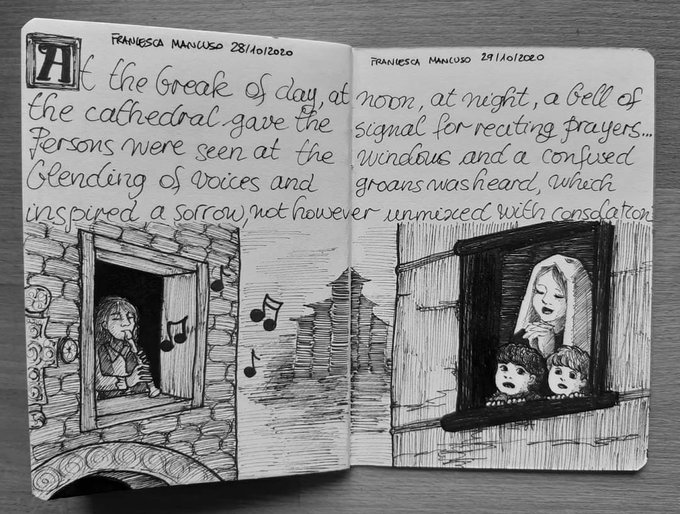 FRANCESCA MANCUSO 28/10/2020
FRANCESCA MANCUSO 29/10/2020
At the break of day, at noon, at night, a bell of
the cathedral gave the signal for reciting prayers...
Persons were seen at the windows and a confused
blending of voices and groans was heard, which
inspired a sorrow, not however unmixed with consolation